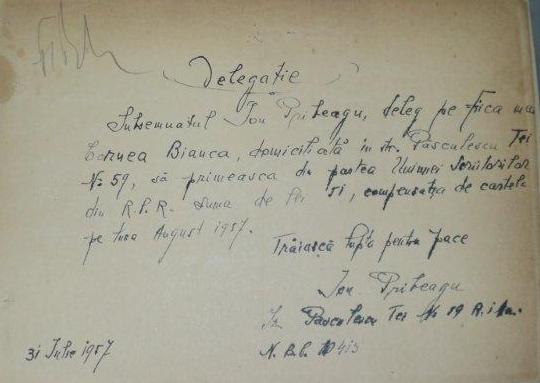 Delegație
Subsemnatul Ion Pribeagu, deleg pe fiica mea
Cornea Bianca, domiciliată în str. Pásculescu Tei
No 59, să primeasca din partea Uniunei Scriitorilor
din R.P.R. suma de lei 51, compensația de cartela
pe luna August 1957.
Trăiască lupta pentru pace
Ion Pribeagu
Pasculescu Tei No 59
31 Iulie 1957